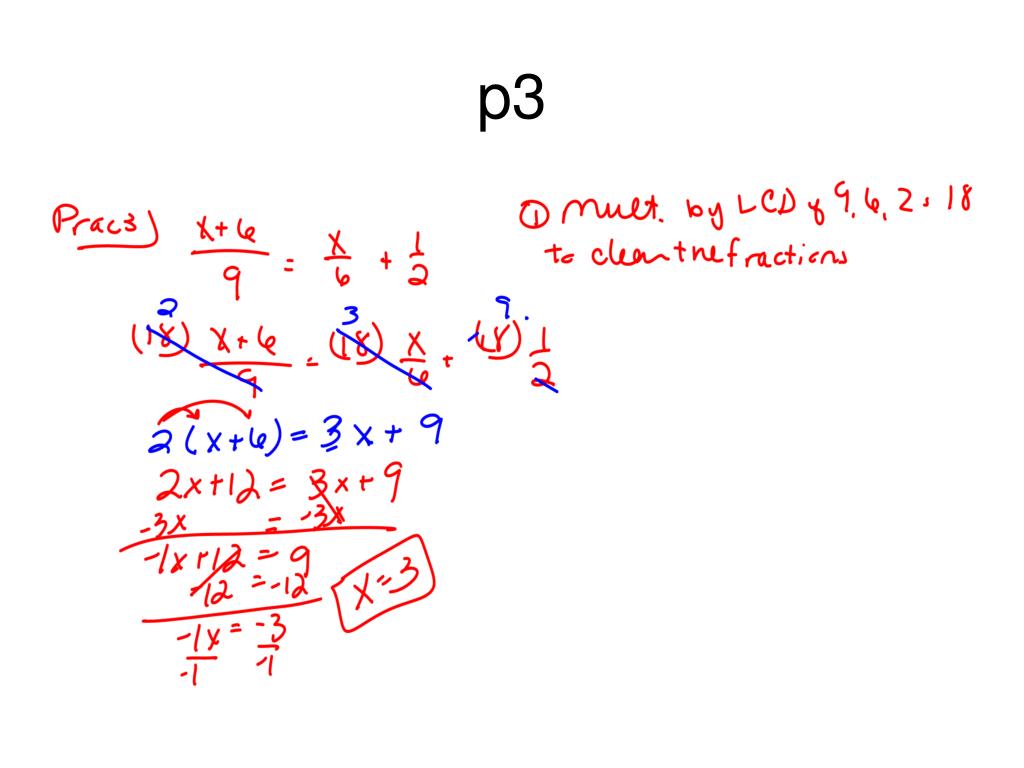 p3
Prac3)
(x+6)/9 = x/6 + 1/2
① Mult. by LCD of 9, 6, 2 : 18
to clear the fractions
2 3 9
(18) (x+6)/9 = (18) x/6 + (18) 1/2
2(x+6) = 3x + 9
2x+12 = 3x+9
-3x = -3x
-1x+12 = 9
-12 = -12
x=3
-1x/-1 = -3/-1